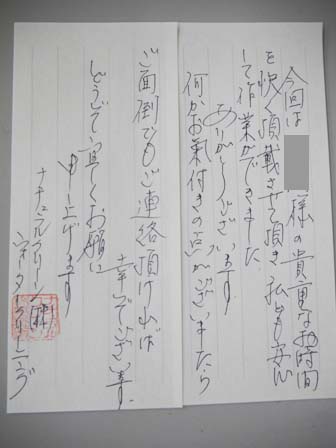 今回は 様の貴重なお時間
を快く頂戴させて頂き私ども安心
して作業ができました
ありがとうございます
何かお氣付きの点がございましたら
ご面倒でもご連絡頂ければ
幸いでございます
どうぞ宜しくお願い
申し上げます
ナチュラルクリーン
ウォータークリーニング